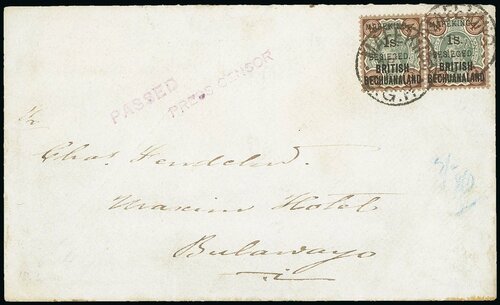 MAFEKING, MAFEKING,
1s 1s
BESIEGED. BESIEGED.
BRITISH BRITISH
BECHUANALAND BECHUANALAND
PASSED
PRESS CENSOR
Chas.
Maxim Hotel
Bulawayo